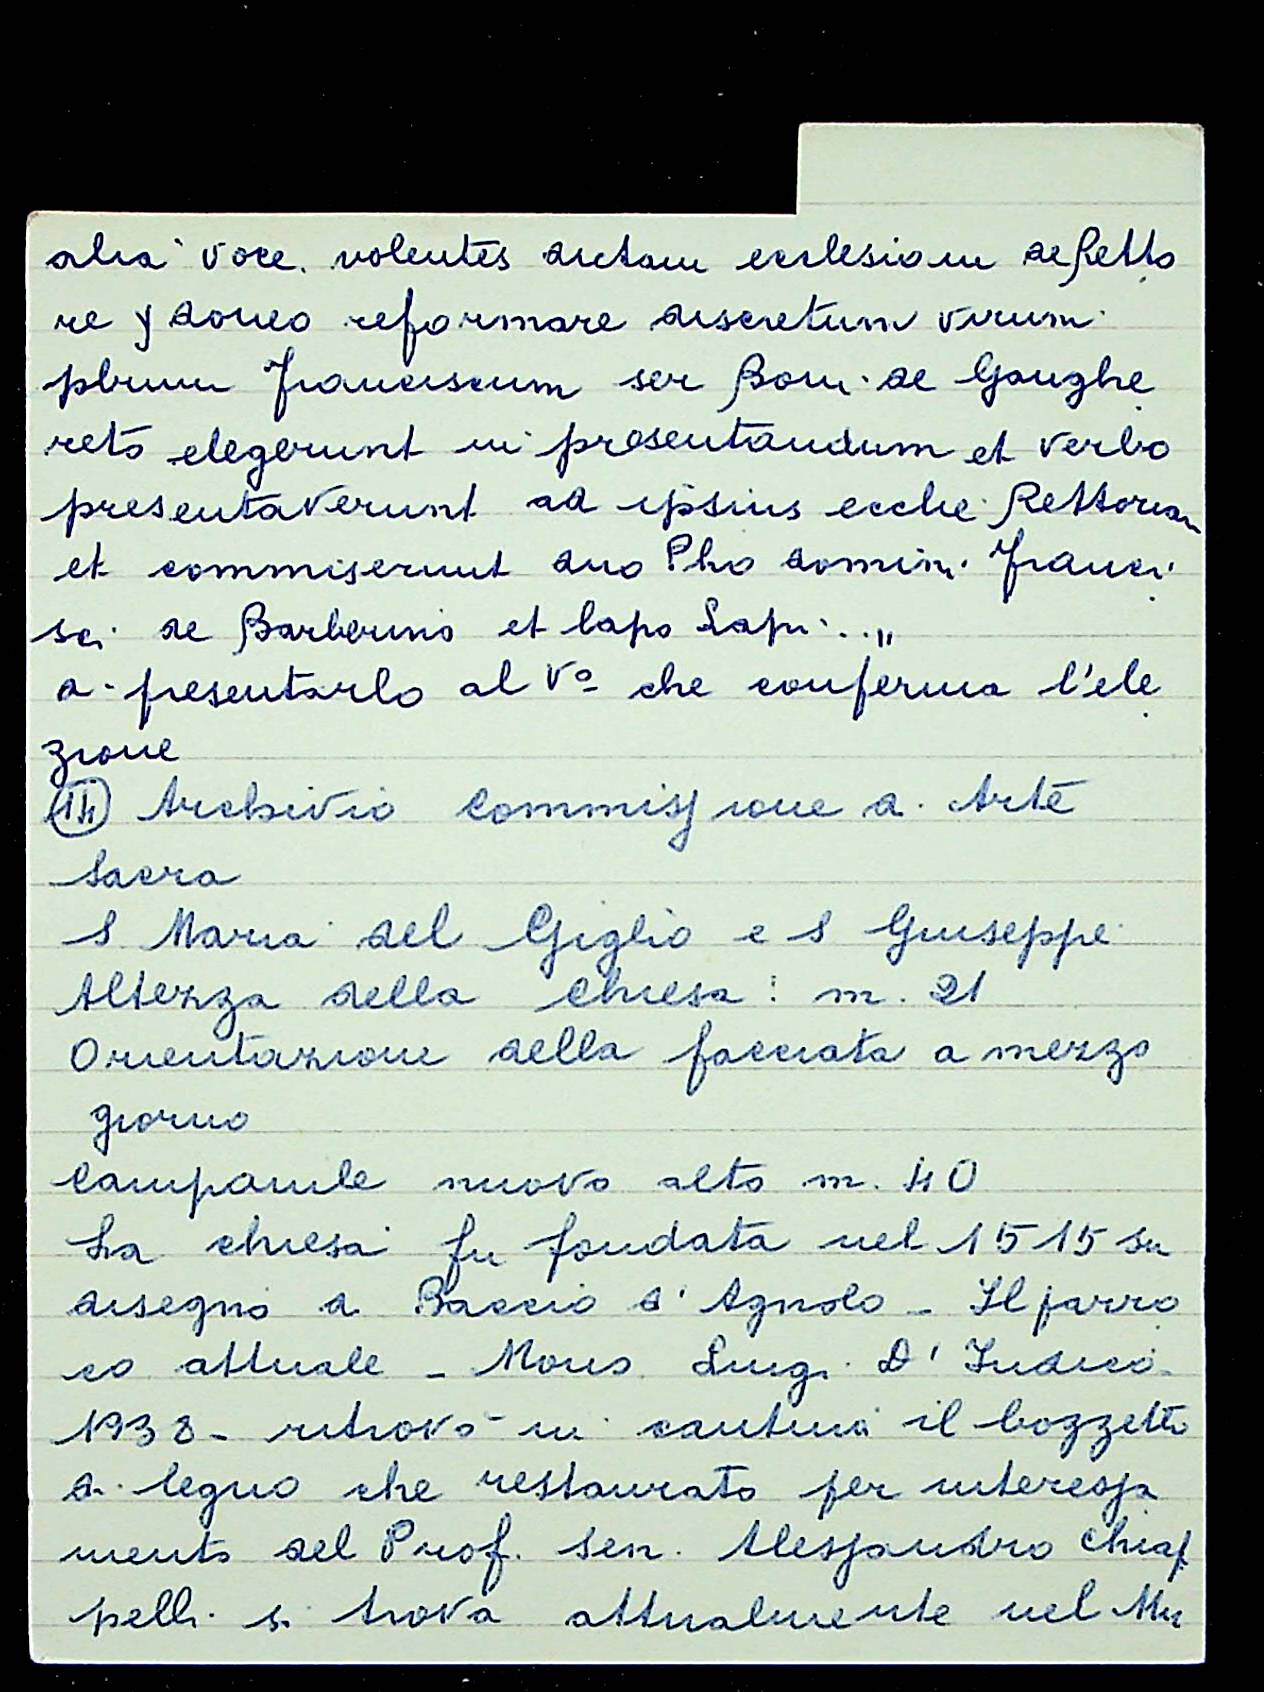 alia voce. volentes dictam ecclesiam de Retto
re ydoneo reformare discretum virum
pbrum Franciscum ser Boni de Ganghe
reto elegerunt in presentandum et verbo
presentaverunt ad ipsius ecclie Rettoriam
et commiserunt dno Pho domini Franci
sci de Barberino et lapo Lapi..„
di presentarlo al Vo che conferma l'ele
zione
(14) Archivio Commissione di Arte
Sacra
S Maria del Giglio e S Giuseppe
Altezza della Chiesa: m. 21
Orientazione della facciata a mezzo
giorno
Campanile nuovo alto m. 40
La chiesa fu fondata nel 1515 su
disegno di Baccio d'Agnolo - Il parro
co attuale - Mons Luigi D'Indico
1938 - ritrovò in cantina il bozzetto
di legno che restaurato per interessa
mento del Prof. sen. Alessandro Chiap
pelli si trova attualmente nel Mu